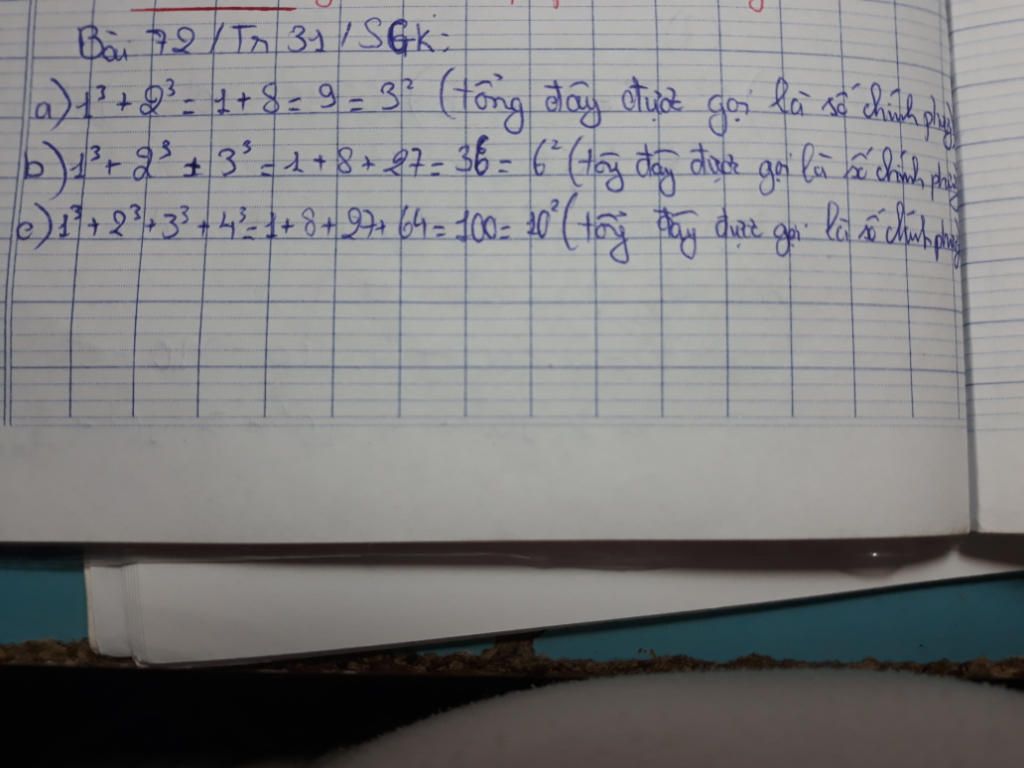 Bài 72 / Tr 31 / SGK:
a) 1³ + 2³ = 1 + 8 = 9 = 3² (tổng đây được gọi là số chính phg
b) 1³ + 2³ + 3³ = 1 + 8 + 27 = 36 = 6² (tổg đây được gọi là số chính phg
c) 1³ + 2³ + 3³ + 4³ = 1 + 8 + 27 + 64 = 100 = 10² (tổg đây được gọi là số chính phg